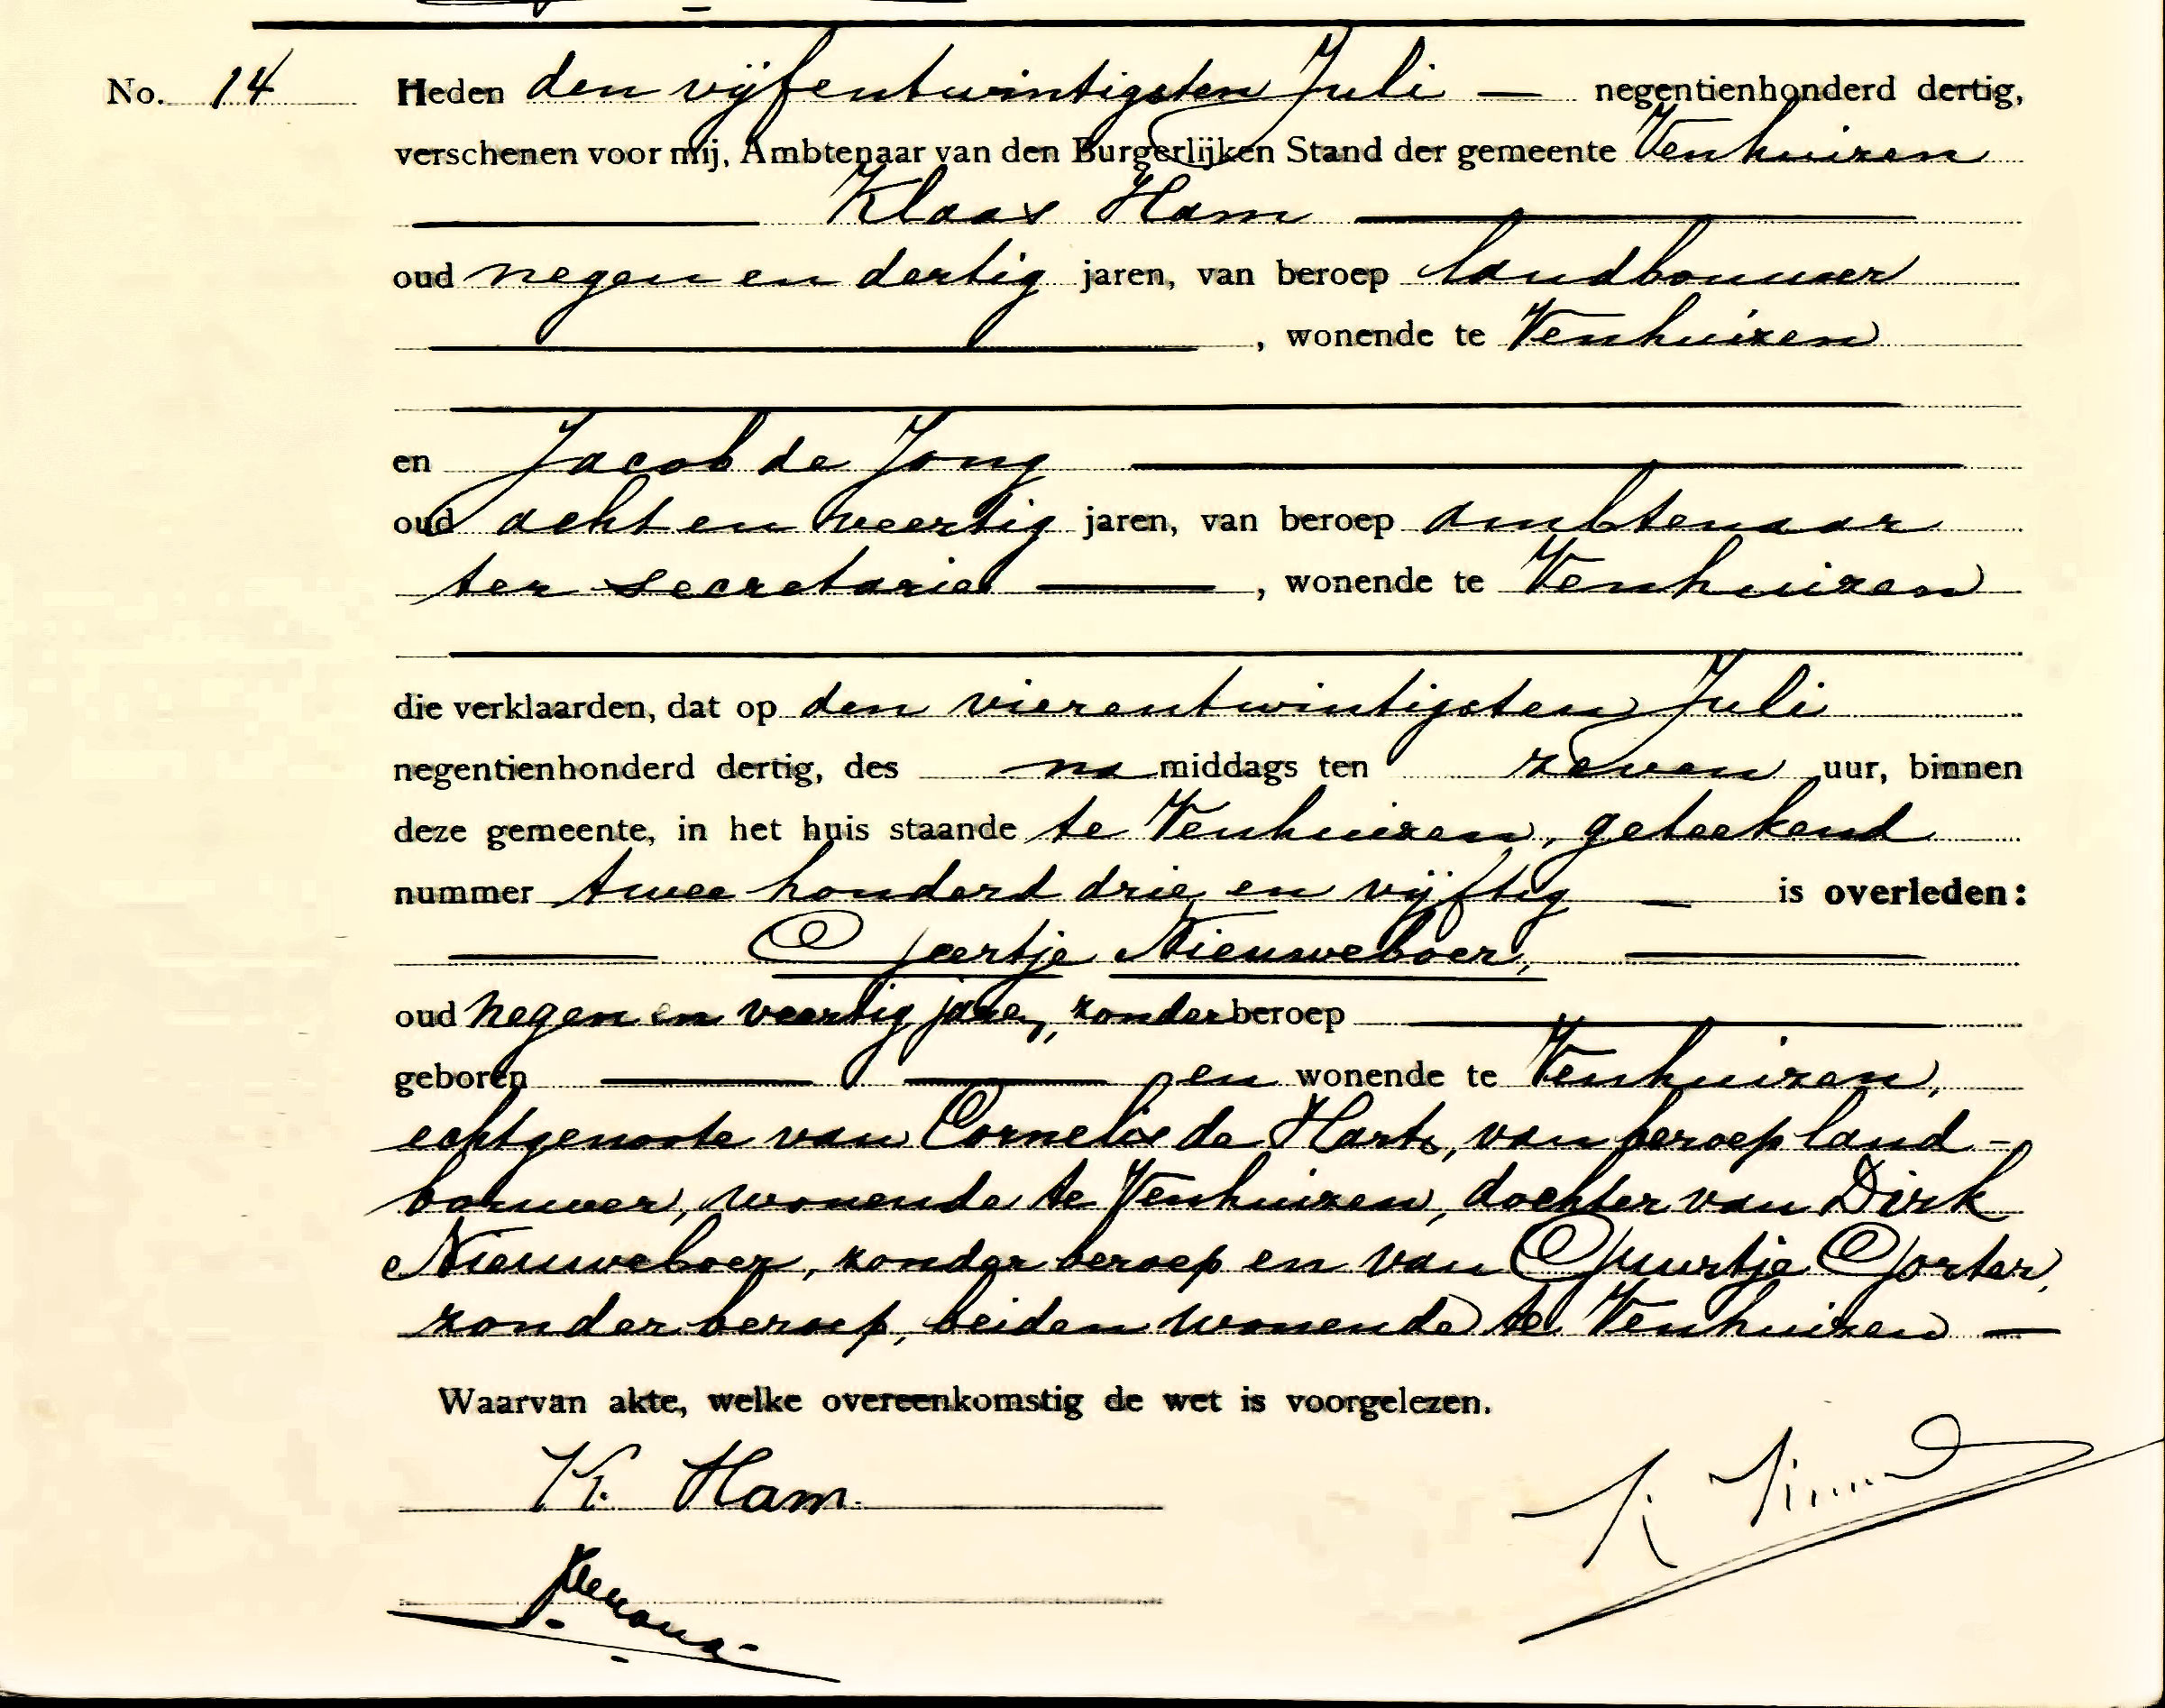 No. 14 Heden den vijfentwintigsten Juli — negentienhonderd dertig,
verschenen voor mij, Ambtenaar van den Burgerlijken Stand der gemeente Venhuizen
Klaas Ham
oud negen en dertig jaren, van beroep landbouwer
, wonende te Venhuizen
en Jacob de Jong
oud acht en veertig jaren, van beroep ambtenaar
ter secretarie , wonende te Venhuizen
die verklaarden, dat op den vierentwintigsten Juli
negentienhonderd dertig, des na middags ten zeven uur, binnen
deze gemeente, in het huis staande te Venhuizen, geteekend
nummer twee honderd drie en vijftig — is overleden:
Geertje Nieuweboer,
oud negen en veertig jaren, zonder beroep
geboren en wonende te Venhuizen,
echtgenoote van Cornelis de Hart, van beroep land-
bouwer, wonende te Venhuizen, dochter van Dirk
Nieuweboer, zonder beroep en van Guurtje Gorter,
zonder beroep, beiden wonende te Venhuizen —
Waarvan akte, welke overeenkomstig de wet is voorgelezen.
K. Ham.